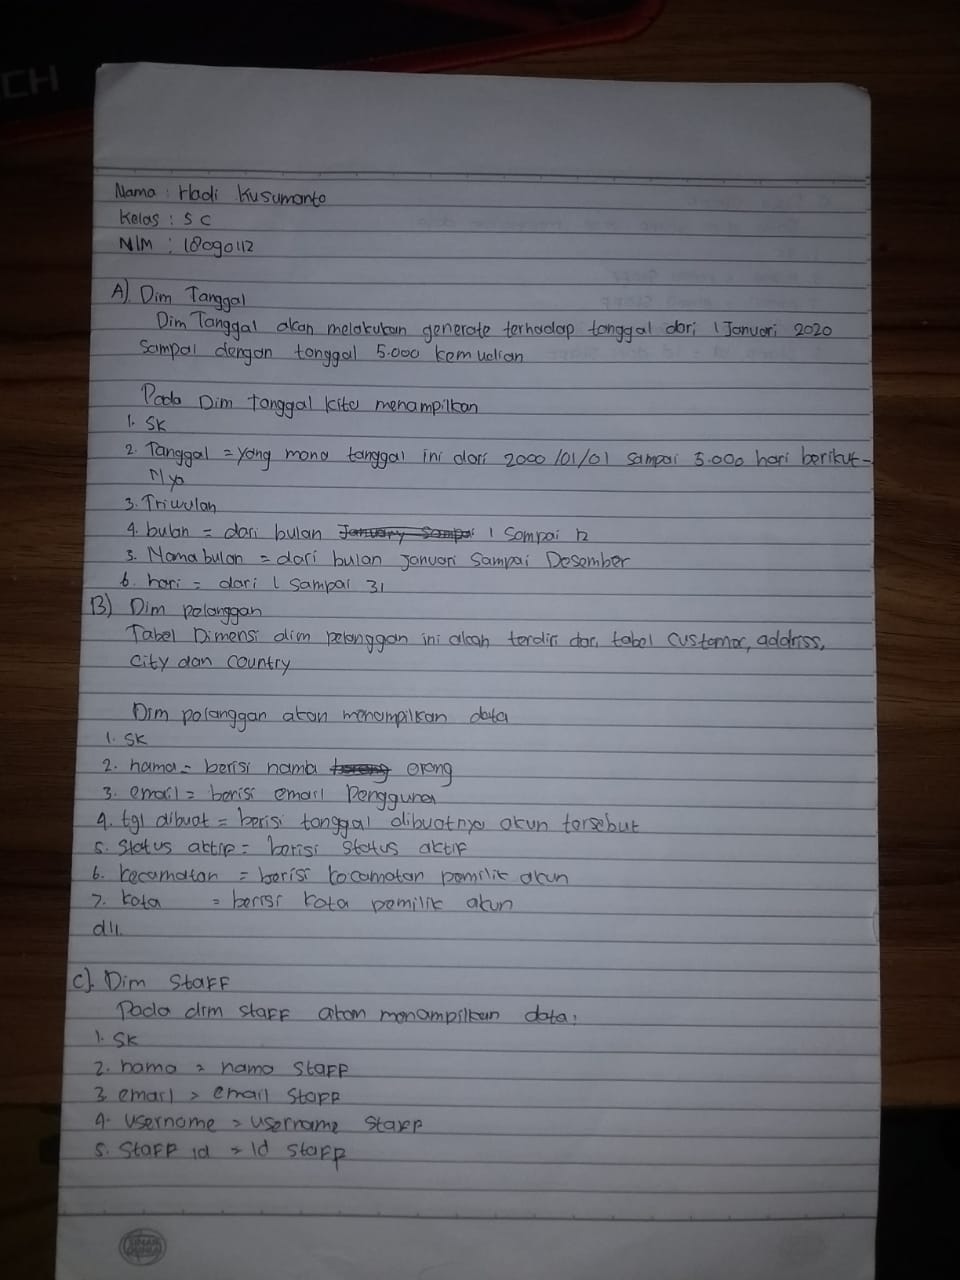 CH
Nama : Hadi Kusumanto
Kelas : 5 C
NIM : 18090112
A) Dim Tanggal
Dim Tanggal akan melakukan generate terhadap tanggal dari 1 Januari 2020
Sampai dengan tanggal 5.000 kemudian
Pada Dim tanggal kita menampilkan
1. SK
2. Tanggal = yang mana tanggal ini dari 2000/01/01 sampai 5.000 hari berikut-
Nya
3. Triwulan
4. bulan = dari bulan 1 Sampai 12
5. Nama bulan = dari bulan Januari Sampai Desember
6. hari = dari 1 Sampai 31
B) Dim pelanggan
Tabel Dimensi dim pelanggan ini akan terdiri dari tabel customer, address,
City dan Country
Dim pelanggan akan menampilkan data
1. SK
2. nama = berisi nama orang
3. email = berisi email Pengguna
4. tgl dibuat = berisi tanggal dibuatnya akun tersebut
5. Status aktif = berisi Status aktif
6. kecamatan = berisi kecamatan pemilik akun
7. kota = berisi kota pemilik akun
dll.
C). Dim Staff
Pada dim staff akan menampilkan data:
1. SK
2. nama = nama staff
3. email = email Staff
4. Username = username Staff
5. Staff id = Id staff
SINAR DUNIA